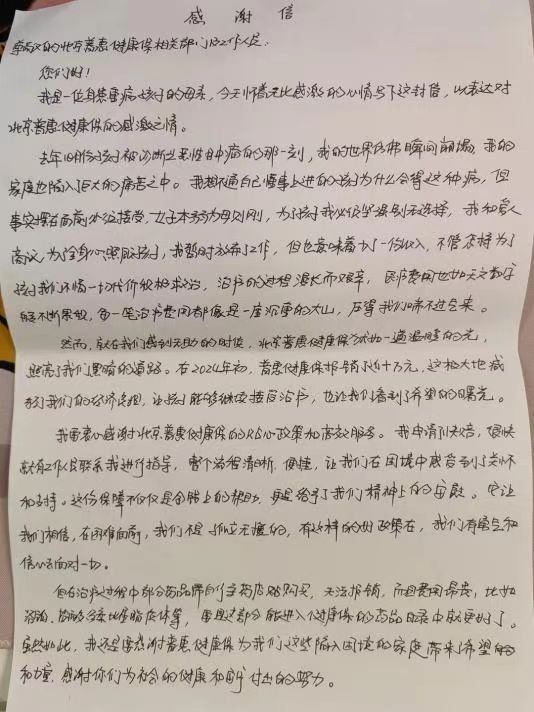 感谢信
尊敬的北京普惠健康保相关部门及工作人员:
您们好!
我是一位身患重病孩子的母亲,今天怀着无比感激的心情写下这封信,以表达对
北京普惠健康保的感激之情。
去年10月份孩子被诊断出恶性白血病的那一刻,我的世界仿佛瞬间崩塌,我的
家庭也陷入了巨大的痛苦之中。我想不通自己懂事上进的孩子为什么会得这种病,但
事实摆在面前必须接受,女子本弱为母则刚,为了孩子我必须坚强别无选择,我和爱人
商议,为了全身心照顾孩子,我暂时放弃了工作,但也意味着少了一份收入,不管怎样为了
孩子我们不惜一切代价积极求治,治疗的过程漫长而艰辛,医疗费用也如天文数字
般不断累积,每一笔治疗费用都像是一座沉重的大山,压得我们喘不过气来。
然而,就在我们感到无助的时候,北京普惠健康保犹如一道温暖的光,
照亮了我们黑暗的道路。在2024年初,普惠健康保报销了近十万元,这极大地减
轻了我们的经济负担,让孩子能够继续接受治疗,也让我们看到了希望的曙光。
我要衷心感谢北京普惠健康保的贴心政策和高效服务。我申请后,很快
就有工作人员联系我进行指导,整个流程清晰、便捷,让我们在困境中感受到了关怀
和支持。这份保障不仅仅是金钱上的帮助,更是给予了我们精神上的安慰。它让
我们相信,在困难面前,我们不是孤立无援的,有这样的好政策在,我们有信心和
面对一切。
但在治疗过程中部分药品需自行去药店购买,无法报销,而且费用昂贵,比如
脂质体等,要是这部分能进入健康保的药品目录中就更好了。
虽然如此,我还是要感谢普惠健康保为我们这些陷入困境的家庭带来了希望
和力量,感谢你们为社会的健康和付出的努力。